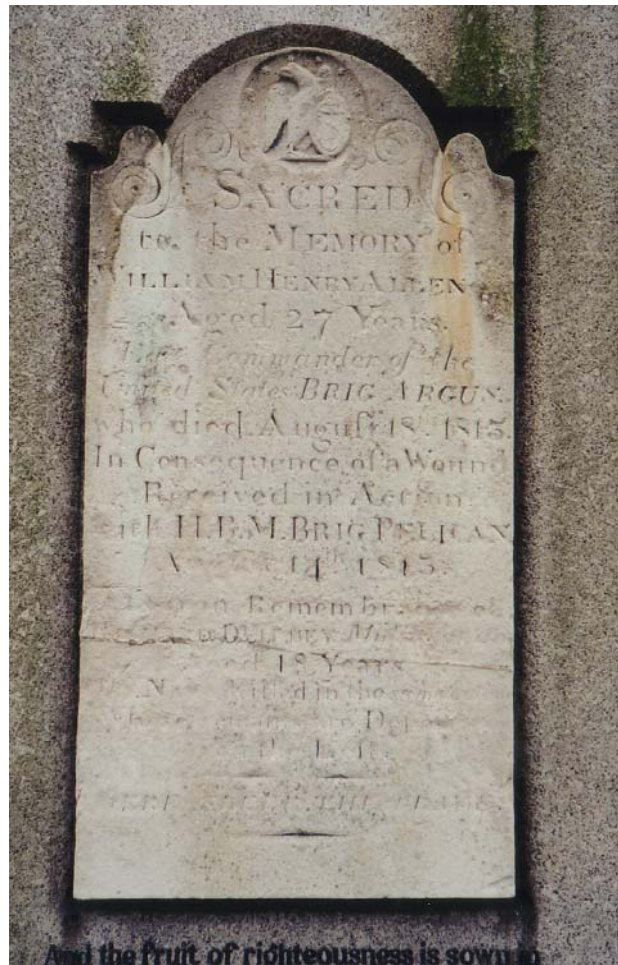 SACRED
to the MEMORY of
WILLIAM HENRY ALLEN
Aged 27 Years.
Commander of the
United States BRIG ARGUS.
who died August 18th 1813.
In Consequence of a Wound
Received in Action
with H.B.M. BRIG PELICAN
August 14th 1813.
Remembrance of
DELPHEY
Aged 18 Years
Killed in the same
And the fruit of righteousness is sown in